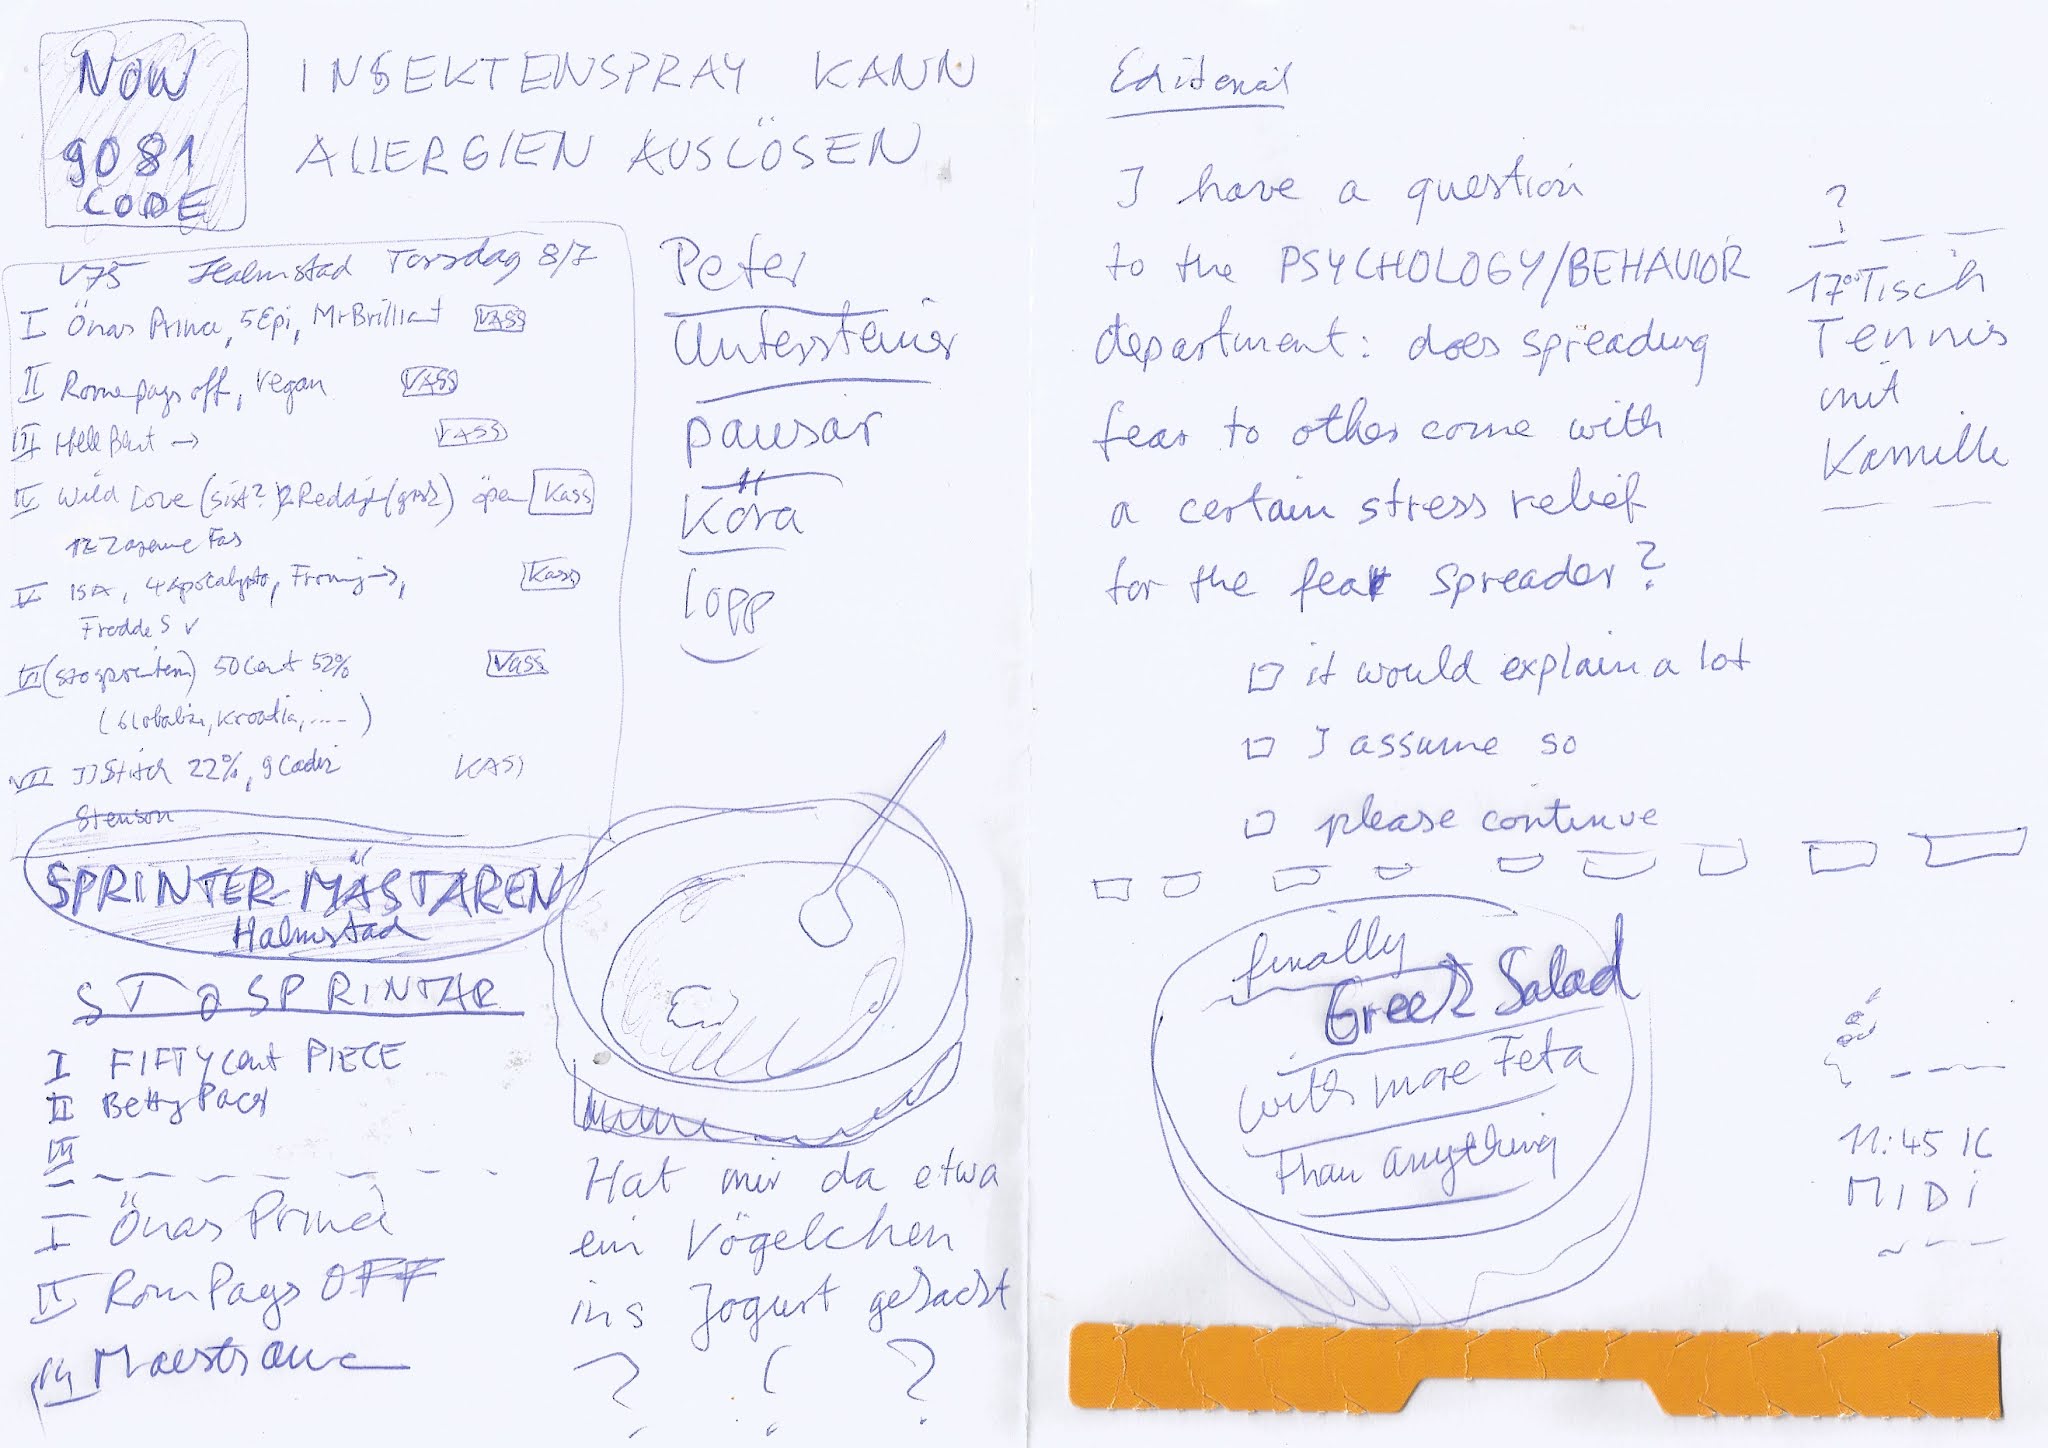 NOW
9081
CODE
INSEKTENSPRAY KANN
ALLERGIEN AUSLÖSEN
V75 Halmstad Torsdag 8/7
I Önas Prince, 5 Epi, Mr Brilliant VASS
II Rome pays off, Vegan VASS
III VASS
IV Wild Love (sist?) öpen Kass
V 4 Apocalypto, Kass
Fredde S V
VI 50 Cent 52% VASS
VII JJ Stitch 22%, 9 Cadiz KASS
Stenson
SPRINTER-MÄSTAREN
Halmstad
STOSPRINTAR
I FIFTY Cent PIECE
II Betty Pacer
III
I Önas Prince
II Rom Pays OFF
Peter
Untersteiner
pausar
Köra
lopp
Hat mir da etwa
ein Vögelchen
ins Jogurt gekackt
? ? ?
Editorial
I have a question
to the PSYCHOLOGY/BEHAVIOR
department: does spreading
fear to others come with
a certain stress relief
for the fear spreader?
it would explain a lot
I assume so
please continue
finally
Greek Salad
with more Feta
than anything
?
17⁰⁰ Tisch
Tennis
mit
Kamilla
11:45 IC
MIDI